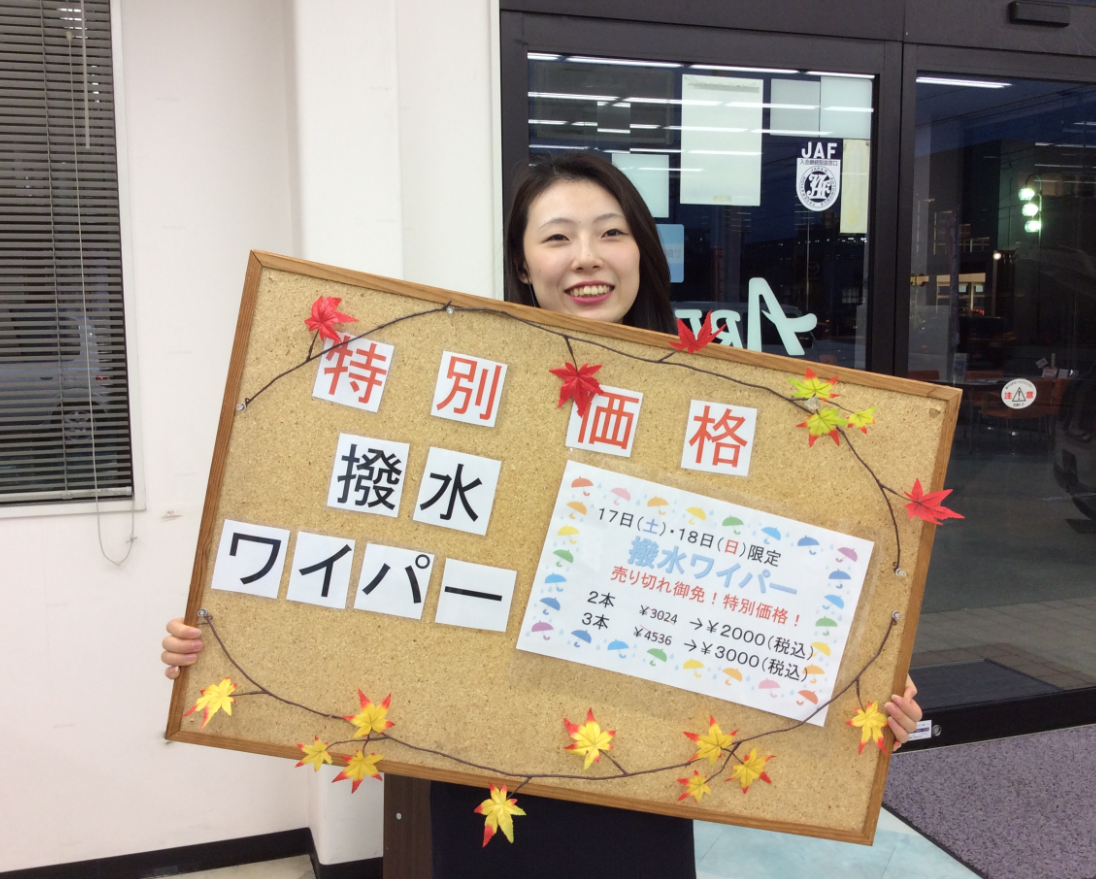 特別価格
撥水
ワイパー
17日(土)・18日(日)限定
撥水ワイパー
売り切れ御免！特別価格！
2本 ￥3024 →￥2000(税込)
3本 ￥4536 →￥3000(税込)
JAF
注意